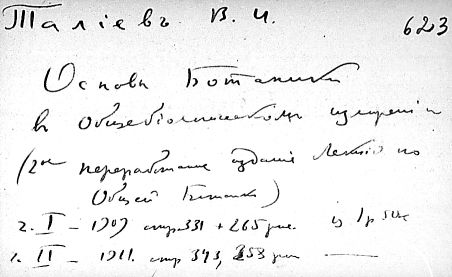 Таліевъ В. И. 623
Основы Ботаники
въ Общебіологическомъ
(2ое переработанное изданіе Лекцій по
Общей Ботаникѣ)
ч. I – 1907 стр. 331 + 265 рис. 1р 50к
ч. II – 1911. стр 343, 253 рис